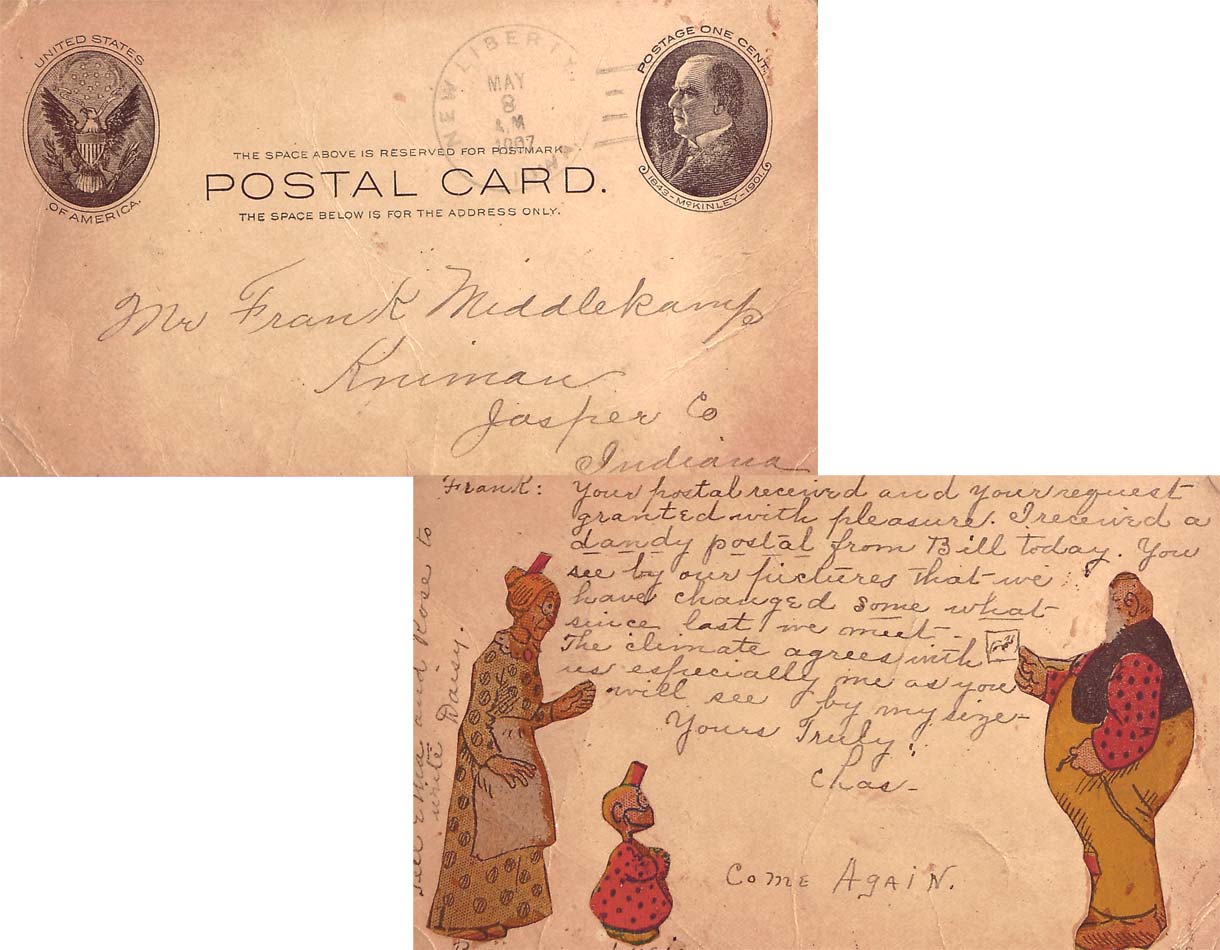 UNITED STATES
OF AMERICA.
NEW LIBERTY,
MAY
8
A.M
1907
POSTAGE ONE CENT.
1843-McKINLEY-1901.
THE SPACE ABOVE IS RESERVED FOR POSTMARK.
POSTAL CARD.
THE SPACE BELOW IS FOR THE ADDRESS ONLY.
Mr Frank Middlekamp
Kniman
Jasper Co
Indiana
Frank: Your postal received and your request
granted with pleasure. I received a
dandy postal from Bill today. You
see by our pictures that we
have changed some what
since last we meet.
The climate agrees with
us especially me as you
will see by my size-
Yours Truly,
Chas-
Come Again.
Tell Edna and Rose to
write Daisy.